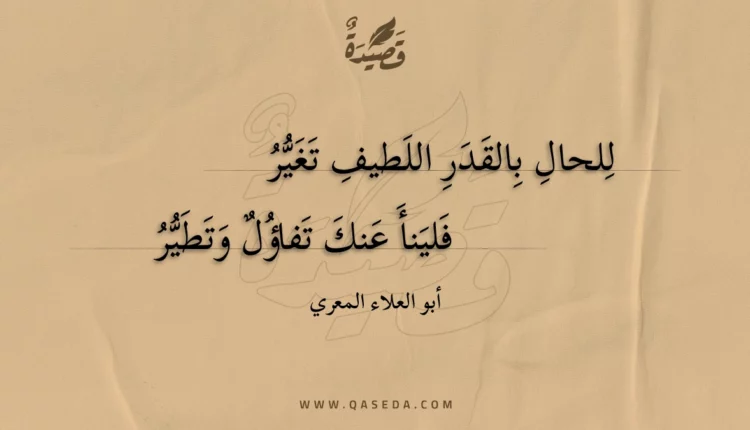 قَصِيدَةٌ
لِلحالِ بِالقَدَرِ اللَطيفِ تَغَيُّرُ
فَليَنأَ عَنكَ تَفاؤُلٌ وَتَطَيُّرُ
أبو العلاء المعري
WWW.QASEDA.COM